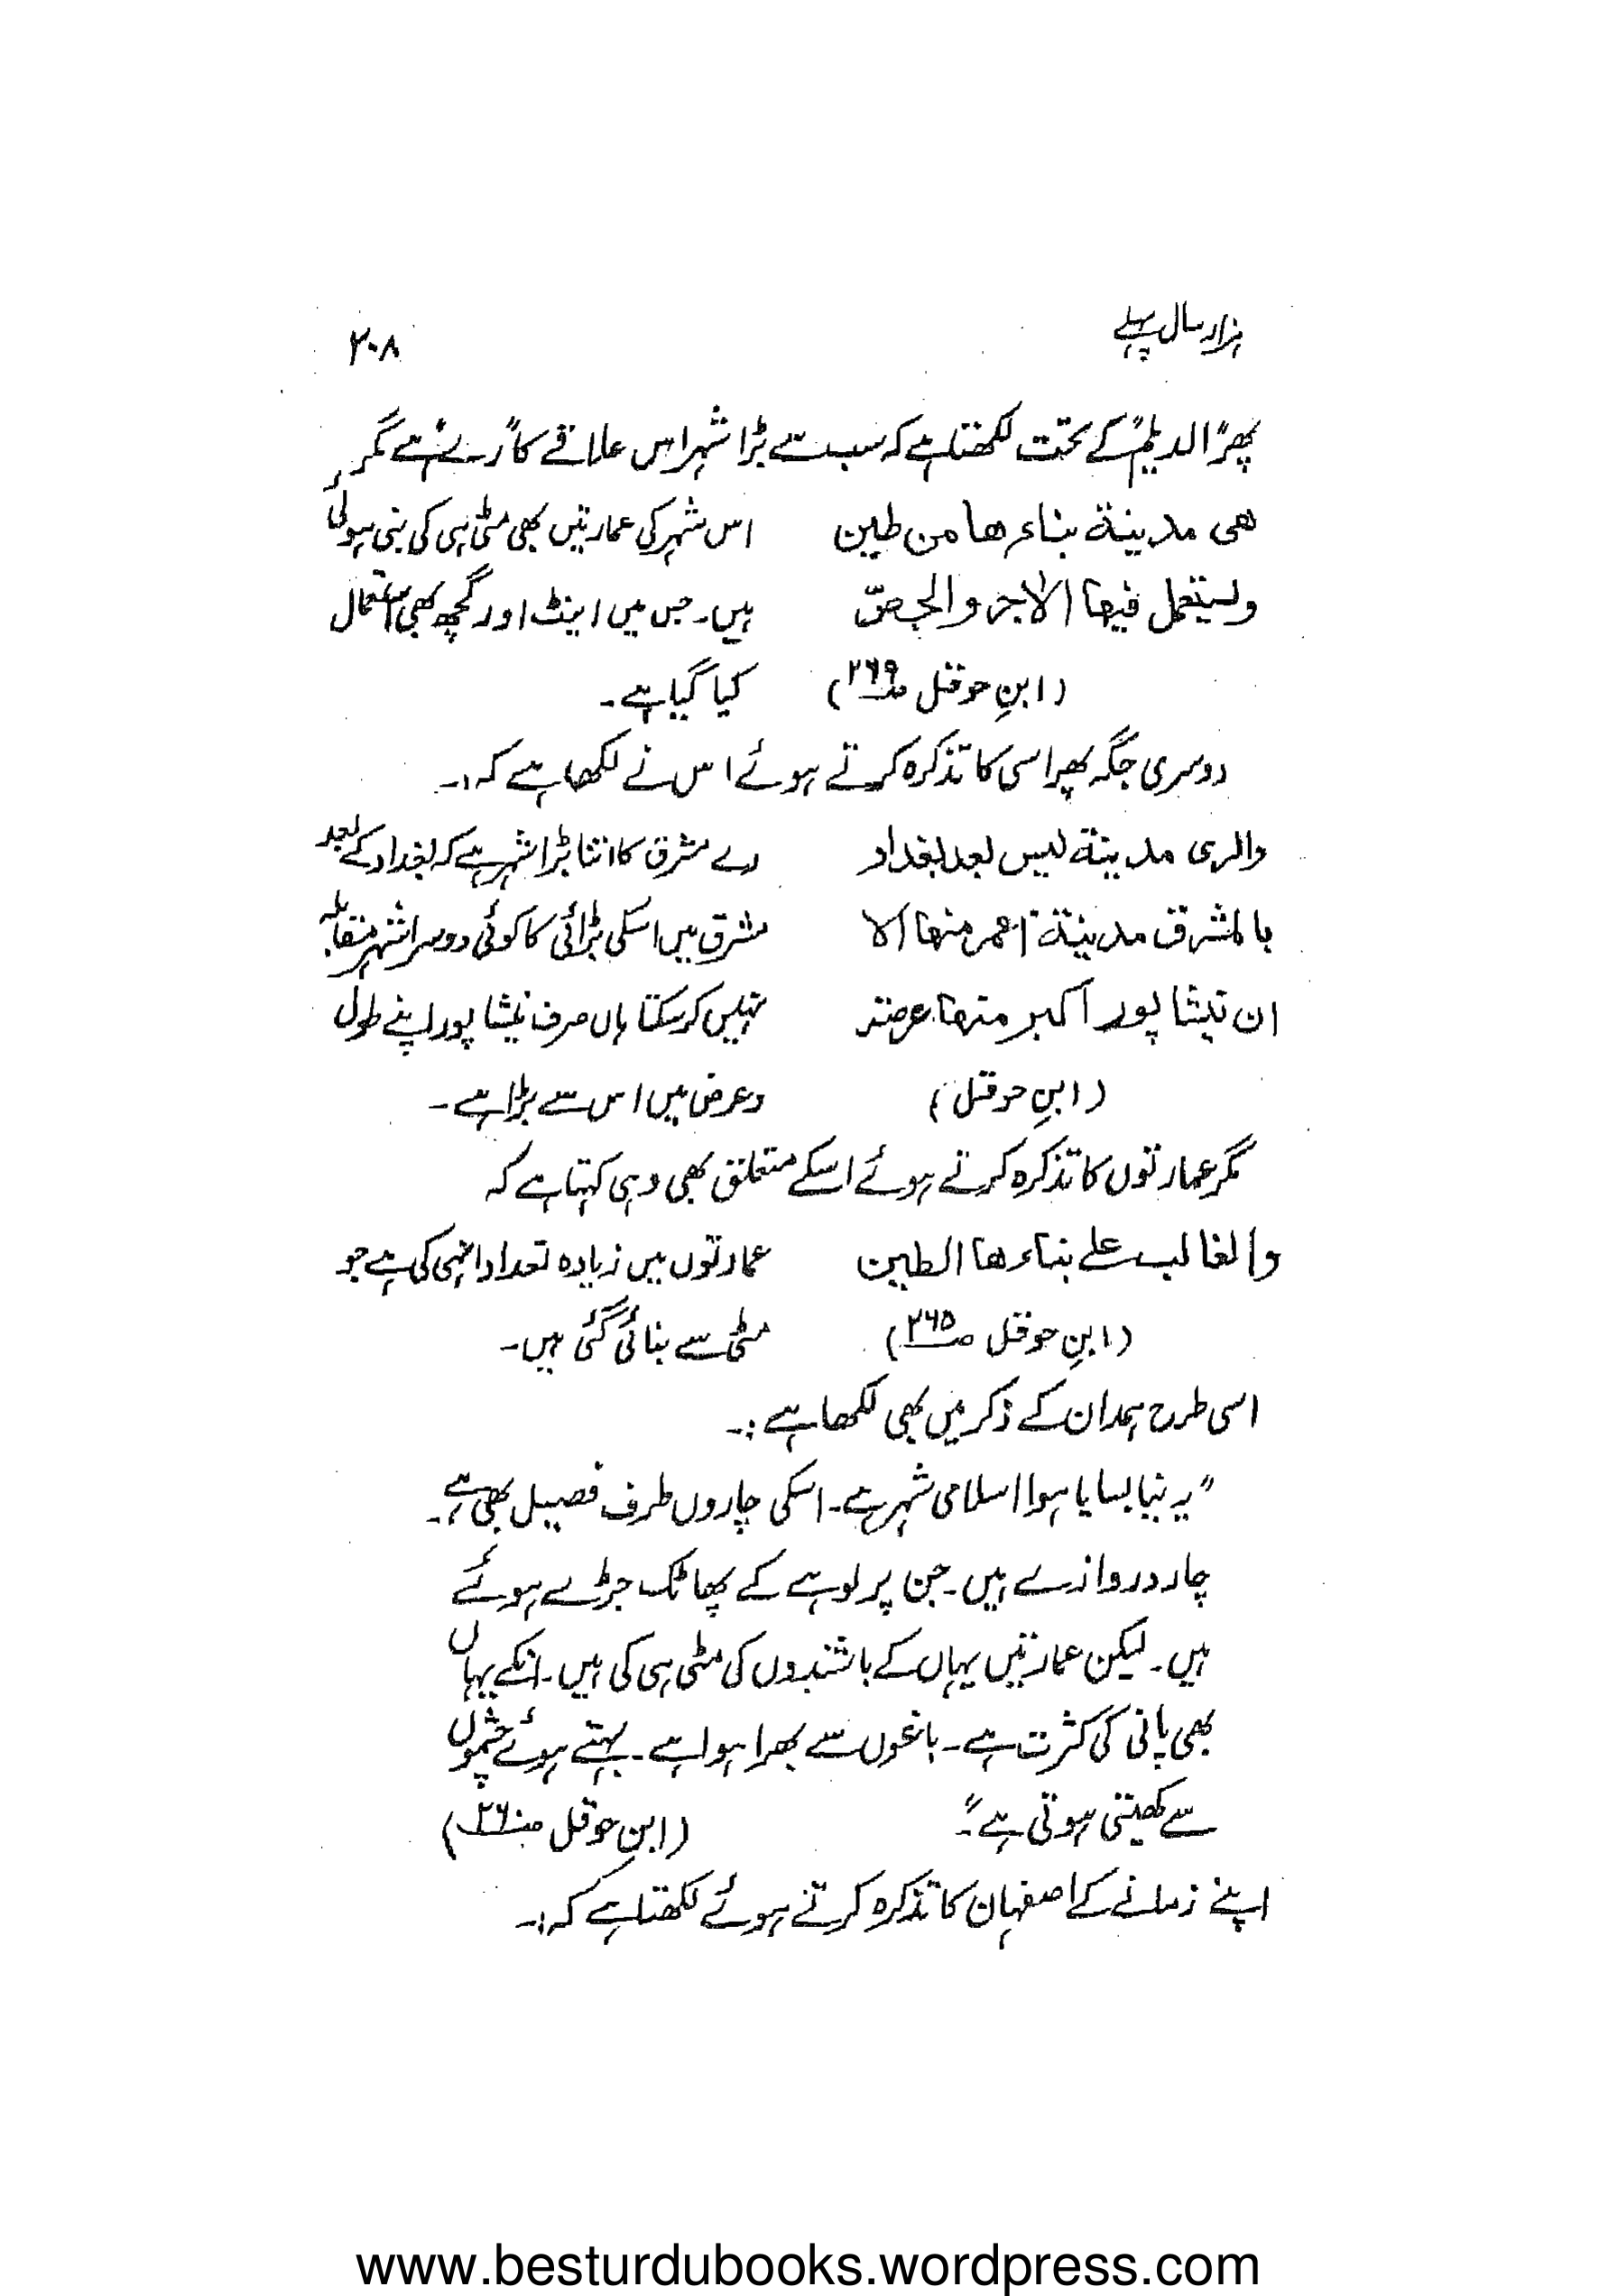 ہزار سال پہلے ۲۰۸
پھر "الدیلم" کے تحت لکھتا ہے کہ سب سے بڑا شہر اس علاقے کا "رے" ہے مگر
ھی مدینۃ بناءھا من طین اس شہر کی عمارتیں بھی مٹی ہی کی بنی ہوئی
ویستعمل فیھا الاجر والجصّ ہیں۔ جس میں اینٹ اور گچھ بھی استعمال
(ابنِ حوقل ص۲۶۹) کیا گیا ہے۔
دوسری جگہ پھر اسی کا تذکرہ کرتے ہوئے اس نے لکھا ہے کہ:۔
والری مدینۃ لیس بعد بغداد رے مشرق کا اتنا بڑا شہر ہے کہ بغداد کے بعد
بالمشرق مدینۃ اعمر منھا الا مشرق میں اسکی بڑائی کا کوئی دوسرا شہر مقابلہ
ان نیشاپور اکبر منھا عرصۃ نہیں کر سکتا ہاں صرف نیشاپور اپنے طول
(ابنِ حوقل) وعرض میں اس سے بڑا ہے۔
مگر عمارتوں کا تذکرہ کرتے ہوئے اسکے متعلق بھی وہی کہتا ہے کہ
والغالب علے بناءھا الطین عمارتوں میں زیادہ تعداد انہی کی ہے جو
(ابنِ حوقل ص۲۶۵) مٹی سے بنائی گئی ہیں۔
اسی طرح ہمدان کے ذکر میں بھی لکھا ہے:۔
"یہ نیا بسایا ہوا اسلامی شہر ہے۔ اسکی چاروں طرف فصیل بھی ہے۔
چار دروازے ہیں۔ جن پر لوہے کے پھاٹک جڑے ہوئے
ہیں۔ لیکن عمارتیں یہاں کے باشندوں کی مٹی ہی کی ہیں۔ انکے یہاں
بھی پانی کی کثرت ہے۔ باغوں سے بھرا ہوا ہے۔ بہتے ہوئے چشموں
سے کھیتی ہوتی ہے" (ابن حوقل ص۲۶۰)
اپنے زمانے کے اصفہان کا تذکرہ کرتے ہوئے لکھتا ہے کہ:۔
www.besturdubooks.wordpress.com